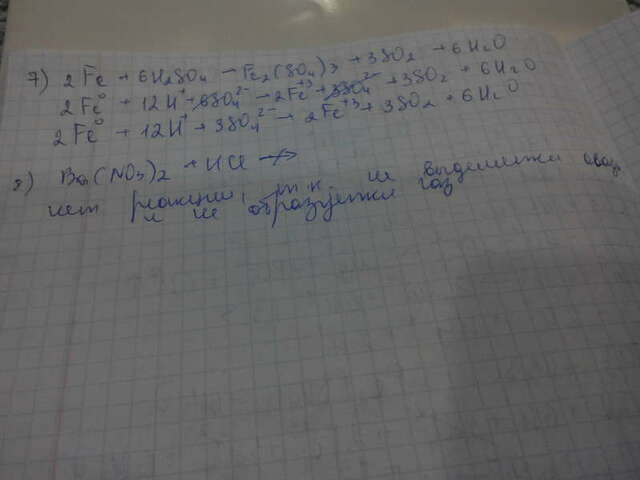 7) 2Fe + 6H₂SO₄ – Fe₂(SO₄)₃ + 3SO₂ + 6H₂O
2Fe⁰ + 12H⁺ + 6SO₄²⁻ – 2Fe⁺³ + 3SO₄²⁻ + 3SO₂ + 6H₂O
2Fe⁰ + 12H⁺ + 3SO₄²⁻ – 2Fe⁺³ + 3SO₂ + 6H₂O
8) Ba(NO₃)₂ + HCl ↛
нет реакции, т.к. не выделяется
и не образуется газ